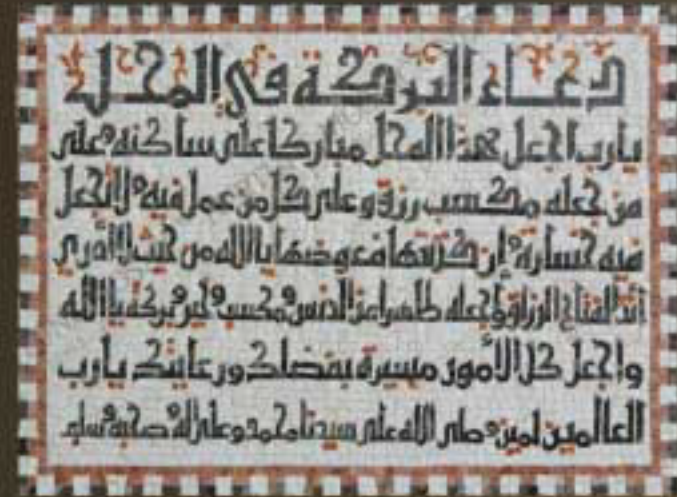 دعاء البركة في المحل
يارب اجعل هذا المحل مباركا على ساكنه وعلى
من جعله مكسب رزق وعلى كل من عمل فيه ولا تجعل
فيه خسارة وإن كتبتها فعوضها ياالله من حيث لا أدري
أنت الفتاح الرزاق واجعله طاهرا من الدنس ومكسب وخير وبركة ياالله
واجعل كل الأمور ميسرة بفضلك ورعايتك يارب
العالمين امين وصلى الله على سيدنا محمد وعلى اله وصحبه وسلم